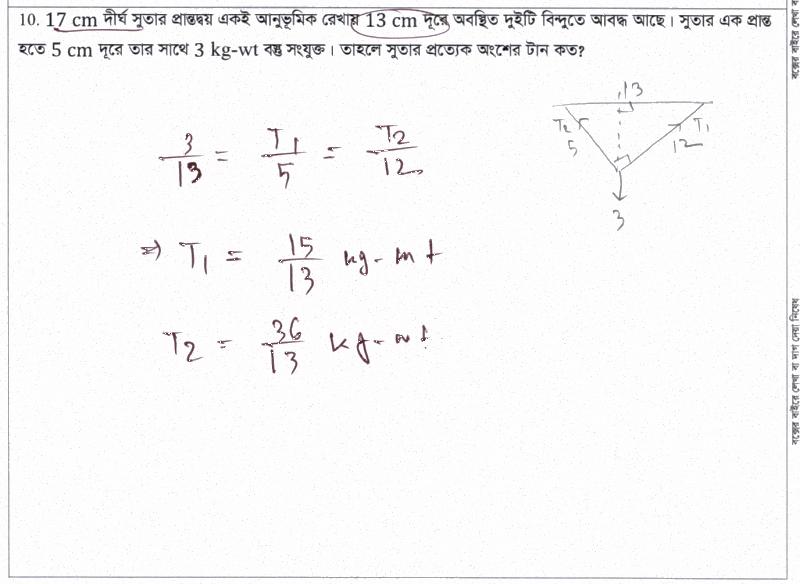 10. 17 cm দীর্ঘ সুতার প্রান্তদ্বয় একই আনুভূমিক রেখায় 13 cm দূরে অবস্থিত দুইটি বিন্দুতে আবদ্ধ আছে। সুতার এক প্রান্ত
হতে 5 cm দূরে তার সাথে 3 kg-wt বস্তু সংযুক্ত। তাহলে সুতার প্রত্যেক অংশের টান কত?
13
T2 T1
5 12
3
3/13 = T1/5 = T2/12
⇒ T1 = 15/13 kg-wt
T2 = 36/13 kg-wt
বক্সের বাইরে লেখা বা দাগ দেয়া নিষেধ